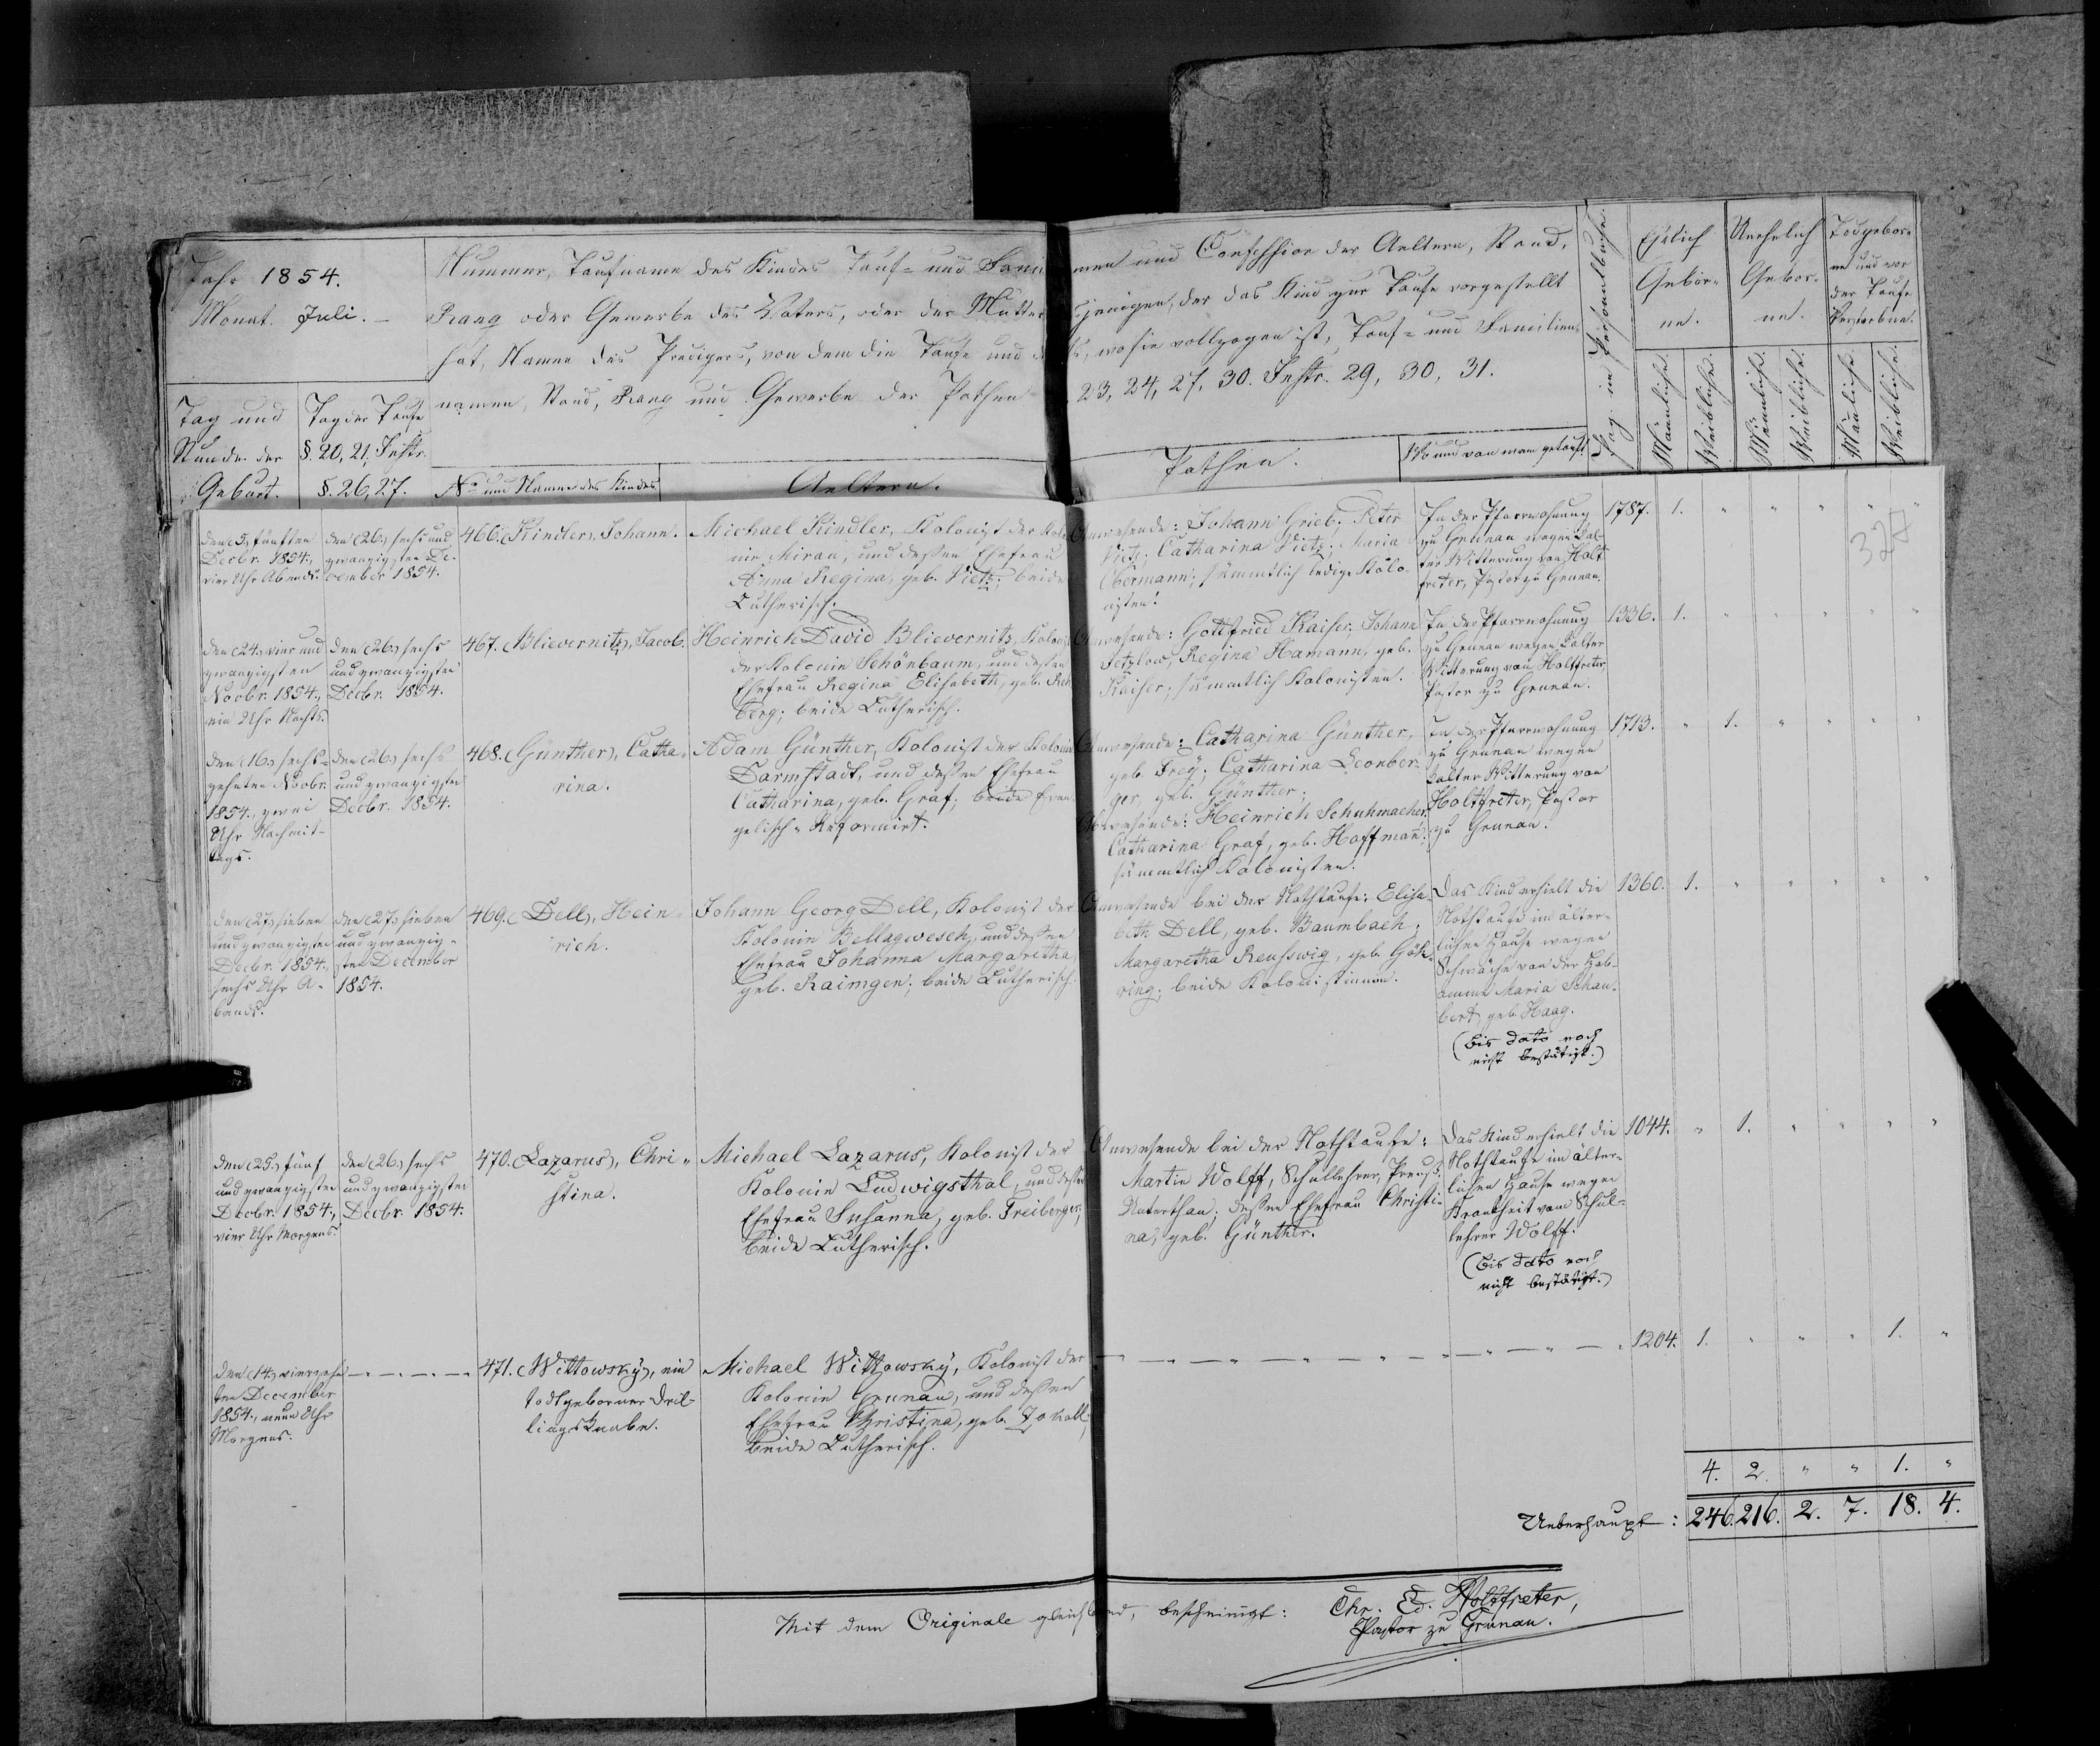 Jahr 1854.
Monat. Juli. —
Nummer, Taufname des Kindes Tauf= und Fami
men und Confession der Aeltern, Stand,
Rang oder Gewerbe des Vaters, oder der Mutter
jenigen, der das Kind zur Taufe vorgestellt
hat, Namen des Predigers, von dem die Taufe und
wo sie vollzogen ist, Tauf= und Familien
namen, Stand, Rang und Gewerbe der Pathen
23, 24, 27, 30. Instr. 29, 30, 31.
Tag und
Stunde der
Geburt.
Tag der Taufe
§. 20, 21, Instr.
§. 26, 27.
No und Namen des Kindes
Aeltern.
Pathen.
Wo und von wem getauft
Pag. im Personalbuche.
Ehelich
Gebor=
ne.
Unehelich
Gebor=
ne.
Todgebor=
ne und vor
der Taufe
Verstorbne.
Männliche.
Weibliche.
Männliche.
Weibliche.
Männliche.
Weibliche.
327
den (5.) fünften
Decbr. 1854.,
vier Uhr Abends.
den (26.) sechs und
zwanzigsten De-
cember 1854.
466. (Kindler), Johann.
Michael Kindler, Kolonist der Kolo
nie Mirau, und dessen Ehefrau
Anna Regina, geb. Vietz; beide
Lutherisch.
Anwesende: Johann Grieb; Peter
Vietz; Catharina Vietz; Maria
Obermann; sämmtlich ledige Kolo-
nisten.
In der Pfarrwohnung
zu Grunau wegen kal-
ter Witterung von Holt
freter, Pastor zu Grunau.
1787. 1. " " " " "
den (24.) vier und
zwanzigsten
Novbr. 1854.,
ein Uhr Nachts.
den (26.) sechs
und zwanzigsten
Decbr. 1854.
467. (Blievernitz), Jacob.
Heinrich David Blievernitz, Kolonist
der Kolonie Schönbaum, und dessen
Ehefrau Regina Elisabeth, geb. Reh
berg; beide Lutherisch.
Anwesende: Gottfried Kaiser; Johann
Setzlow; Regina Hamann, geb.
Kaiser; sämmtlich Kolonisten.
In der Pfarrwohnung
zu Grunau wegen kalter
Witterung von Holtfreter
Pastor zu Grunau.
1336. 1. " " " " "
den (16.) sechs-
zehnten Novbr.
1854., zwei
Uhr Nachmit-
tags.
den (26.) sechs
und zwanzigsten
Decbr. 1854.
468. (Günther), Catha-
rina.
Adam Günther, Kolonist der Kolonie
Darmstadt, und dessen Ehefrau
Catharina, geb. Graf; beide Evan
gelisch-Reformirt.
Anwesende: Catharina Günther,
geb. Frey; Catharina Leonber-
ger, geb. Günther;
Abwesende: Heinrich Schuhmacher;
Catharina Graf, geb. Hoffmañ;
sämmtlich Kolonisten.
In der Pfarrwohnung
zu Grunau wegen
kalter Witterung von
Holtfreter, Pastor
zu Grunau.
1713. " 1. " " " "
den (27.) sieben
und zwanzigsten
Decbr. 1854.,
sechs Uhr A-
bends.
den (27.) sieben
und zwanzig-
sten December
1854.
469. (Dell), Hein-
rich.
Johann Georg Dell, Kolonist der
Kolonie Bellagwesch, und dessen
Ehefrau Johanna Margaretha,
geb. Raimgen; beide Lutherisch.
Anwesende bei der Nothtaufe: Elisa-
beth Dell, geb. Baumbach;
Margaretha Reuswig, geb. Göh-
ring; beide Kolonistinnen.
Das Kind erhielt die
Nothtaufe im älter-
lichen Hause wegen
Schwäche von der Heb-
amme Maria Schau-
bert, geb. Haag.
(bis dato noch
nicht bestätigt.)
1360. 1. " " " " "
den (25.) fünf
und zwanzigsten
Decbr. 1854.,
vier Uhr Morgens.
den (26.) sechs
und zwanzigsten
Decbr. 1854.
470. (Lazarus), Chri-
stina.
Michael Lazarus, Kolonist der
Kolonie Ludwigsthal, und dessen
Ehefrau Susanna, geb. Freiberger;
beide Lutherisch.
Anwesende bei der Nothtaufe:
Martin Wolff, Schullehrer, Preuß.
Unterthan; dessen Ehefrau Christi-
na, geb. Günther.
Das Kind erhielt die
Nothtaufe im älter-
lichen Hause wegen
Krankheit vom Schul-
lehrer Wolff.
(bis dato noch
nicht bestätigt.)
1044. " 1. " " " "
den (14.) vierzehn
ten December
1854., neun Uhr
Morgens.
471. (Wittowsky), ein
todtgeborner Dril-
lingsknabe.
Michael Wittowsky, Kolonist der
Kolonie Grunau, und dessen
Ehefrau Christina, geb.
beide Lutherisch.
1204. 1. " " " 1. "
4. 2. " " 1. "
Ueberhaupt: 246. 216. 2. 7. 18. 4.
Mit dem Originale gleichlautend, bescheinigt: Chr. Ed. Holtfreter,
Pastor zu Grunau.